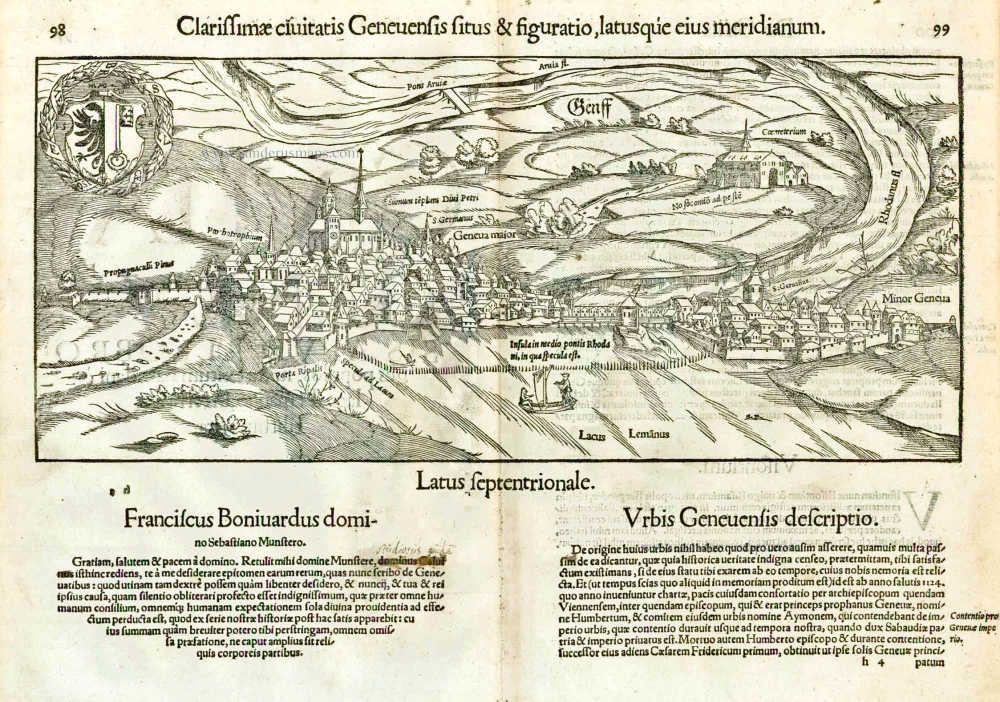 98
Clarissimæ ciuitatis Geneuensis situs & figuratio, latusqúe eius meridianum.
99
Aruia fl.
Pons Aruiæ
Genff
Cœmeterium
15 48
www.sanderusmaps.com
Summum tēplum Diui Petri
Nosocomiū ad pestē
Rhodanus fl
S. Germanus
Geneua maior
Propugnaculū Pinus
S. Geruasius
Minor Geneua
Insula in medio pontis Rhoda
ni, in qua specula est.
Porta Ripalis
Specula ad Lacum
Lacus Lemānus
Latus septentrionale.
Franciscus Boniuardus domi-
no Sebastiano Munstero.
Gratiam, salutem & pacem à domino. Retulit mihi domine Munstere, dominus
isthinc rediens, te à me desiderare epitomen earum rerum, quas nunc scribo de Gene-
uatibus: quod utinam tam dextrè possem quàm libenter desidero, & nuncij, & tua & rei
ipsius causa, quam silentio obliterari profecto esset indignissimum, quæ præter omne hu-
manum consilium, omnemq́; humanam expectationem sola diuina prouidentia ad effe-
ctum perducta est, quod ex serie nostræ historiæ post hac satis apparebit: cu
ius summam quàm breuiter potero tibi perstringam, omnem omis-
sa præfatione, ne caput amplius sit reli-
quis corporeis partibus.
Vrbis Geneuensis descriptio.
De origine huius urbis nihil habeo quod pro uero ausim asserere, quamuis multa pas-
sim de ea dicantur, quæ quia historica ueritate indigna censeo, prætermitam, tibi satisfa-
ctum existimans, si de eius statu tibi exarem ab eo tempore, cuius nobis memoria est reli-
cta. Et (ut tempus scias quo aliquid in memoriam proditum est) id est ab anno salutis 1124.
quo anno inueniuntur chartæ, pacis cuiusdam confortatio per archiepiscopum quendam
Viennensem, inter quendam episcopum, qui & erat princeps prophanus Geneuæ, nomi-
ne Humbertum, & comitem eiusdem urbis nomine Aymonem, qui contendebant de im-
perio urbis, quæ contentio durauit usque ad tempora nostra, quando dux Sabaudiæ pa-
tria & imperio priuatus est. Mortuo autem Humberto episcopo & durante contentione,
successor eius adiens Cæsarem Fridericum primum, obtinuit ut ipse solis Geneuæ princi-
Contentio pro
Geneuæ impe
rio.
h 4 patum